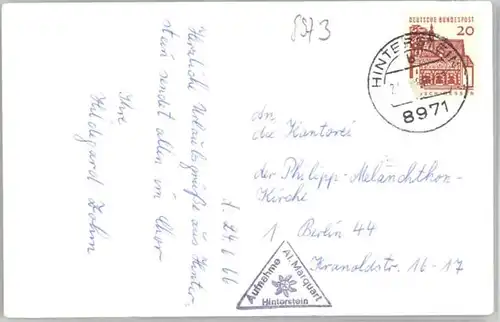 8973
DEUTSCHE BUNDESPOST
20
HINTERSTEIN
8971
d. 24.6.66
Herzliche Urlaubsgrüße aus Hinter-
stein sendet allen im Chor
Ihre
Hildegard Dohm
An
die Kantorei
der Philipp-Melanchthon-
Kirche
1 Berlin 44
Kranoldstr. 16-17
Aufnahme Al. Marquart
Hinterstein